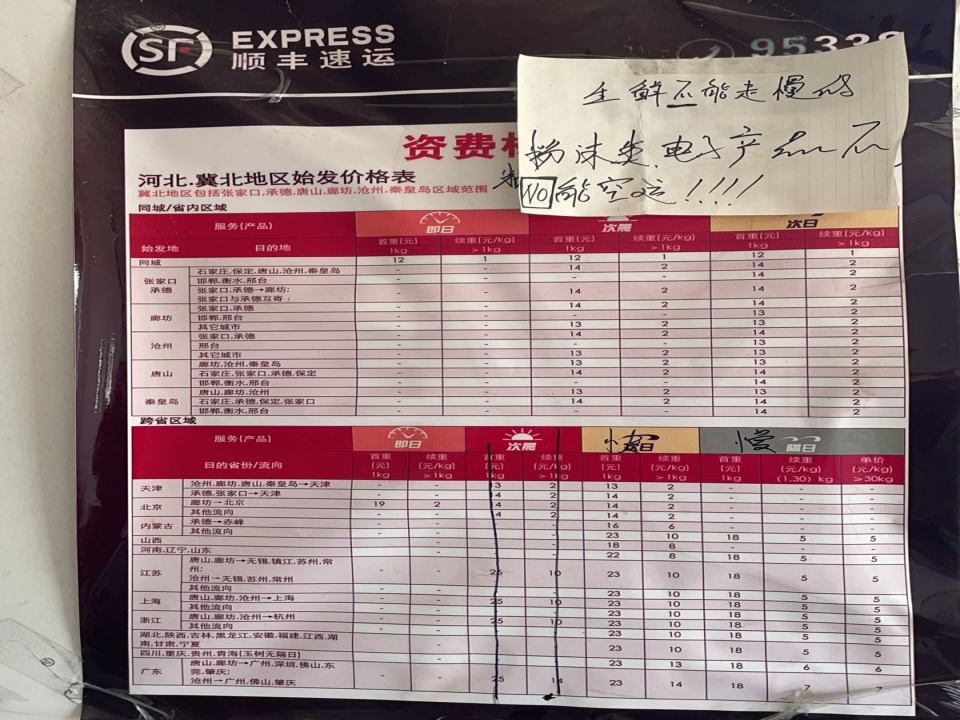 SF EXPRESS
顺丰速运
95338
生鲜不能走慢的
粉沫类.电子产品不
NO能空运!!!!
资费
河北.冀北地区始发价格表
冀北地区包括张家口,承德,唐山,廊坊,沧州,秦皇岛区域范围
同城/省内区域
服务(产品) 即日 次晨 次日
始发地 目的地 首重(元) 1kg 续重(元/kg) >1kg 首重(元) 1kg 续重(元/kg) >1kg 首重(元) 1kg 续重(元/kg) >1kg
同城 12 1 12 1 12 1
张家口 承德 石家庄,保定,唐山,沧州,秦皇岛 - - 14 2 14 2
邯郸,衡水,邢台 - - - - 14 2
张家口,承德→廊坊; 张家口与承德互寄; - - 14 2 14 2
廊坊 张家口,承德 - - 14 2 14 2
邯郸,邢台 - - - - 13 2
其它城市 - - 13 2 13 2
沧州 张家口,承德 - - 14 2 14 2
邢台 - - - - 13 2
其它城市 - - 13 2 13 2
唐山 廊坊,沧州,秦皇岛 - - 13 2 13 2
石家庄,张家口,承德,保定 - - 14 2 14 2
邯郸,衡水,邢台 - - - - 14 2
秦皇岛 唐山,廊坊,沧州 - - 13 2 13 2
石家庄,承德,保定,张家口 - - 14 2 14 2
邯郸,衡水,邢台 - - - - 14 2
跨省区域
服务(产品) 即日 次晨 快 日 慢 隔日
目的省份/流向 首重(元) 1kg 续重(元/kg) >1kg 首重(元) 1kg 续重(元/kg) >1kg 首重(元) 1kg 续重(元/kg) >1kg 首重(元) 1kg 续重(元/kg) (1,30) kg 单价(元/kg) ≥30kg
天津 沧州,廊坊,唐山,秦皇岛→天津 - - 13 2 13 2 - - -
承德,张家口→天津 - - 14 2 14 2 - - -
北京 廊坊→北京 19 2 14 2 14 2 - - -
其他流向 - - 14 2 14 2 - - -
内蒙古 承德→赤峰 16 6
其他流向 23 10 18 5 5
山西 18 8 - - -
河南,辽宁,山东 22 8 18 5 5
江苏 唐山,廊坊→无锡,镇江,苏州,常州; 沧州→无锡,苏州,常州 - - 25 10 23 10 18 5 5
其他流向 - - 23 10 18 5 5
上海 唐山,廊坊,沧州→上海 - - 25 10 23 10 18 5 5
其他流向 - - 23 10 18 5 5
浙江 唐山,廊坊,沧州→杭州 - - 25 10 23 10 18 5 5
其他流向 - - 23 10 18 5 5
湖北,陕西,吉林,黑龙江,安徽,福建,江西,湖南,甘肃,宁夏 23 10 18 5 5
四川,重庆,贵州,青海(玉树无隔日) 23 13 18 6 6
广东 唐山,廊坊→广州,深圳,佛山,东莞,肇庆; 沧州→广州,佛山,肇庆 - - 25 14 23 14 18 7 7